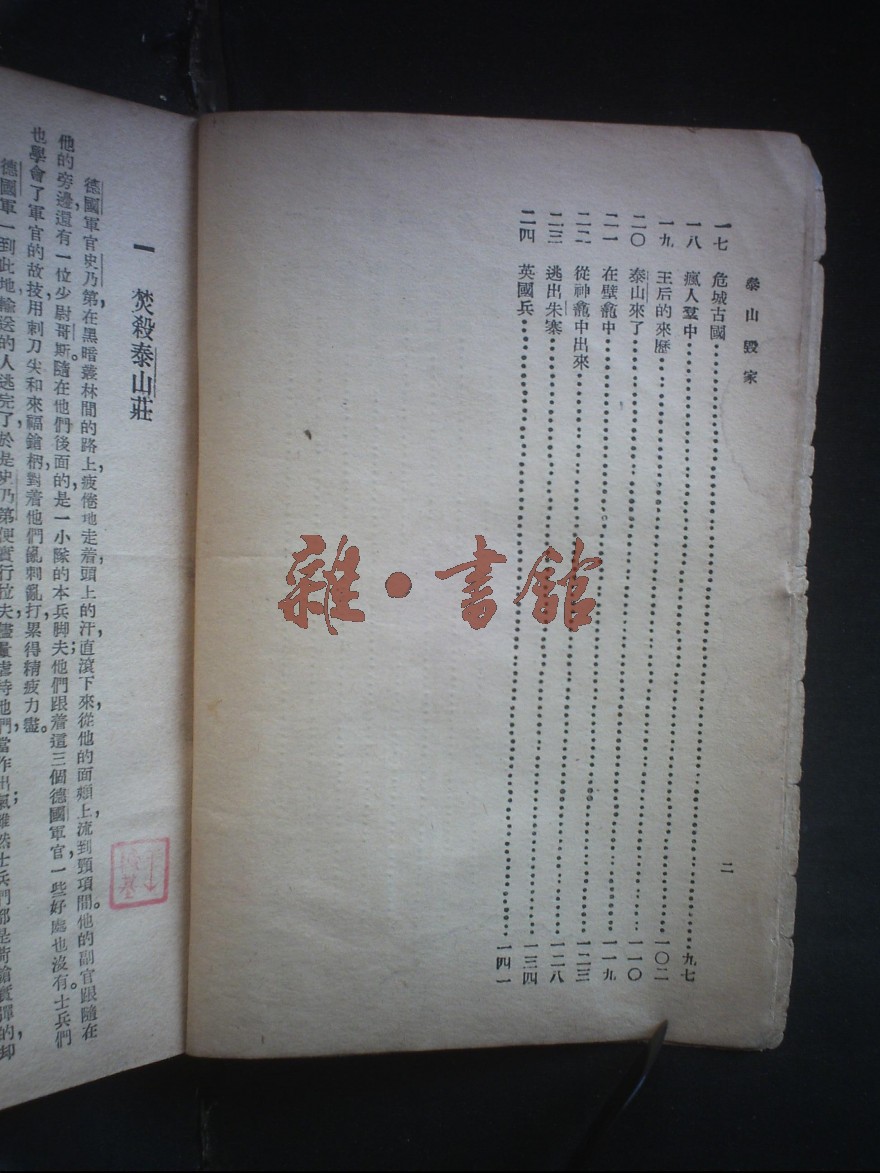 泰山毀家
二
一七 危城古國……九七
一八 瘋人羣中……一〇二
一九 王后的來歷……一一〇
二〇 泰山來了……一一九
二一 在壁龕中……一二三
二二 從神龕中出來……一二八
二三 逃出朱寨……一三四
二四 英國兵……一四一
雜·書館
一 焚殺泰山莊
德國軍官史乃第，在黑暗叢林間的路上，疲倦地走着，頭上的汗，直滾下來，從他的面頰上，流到頸項間。他的副官跟隨在
他的旁邊，還有一位少尉哥斯。隨在他們後面的，是一小隊的本兵脚夫；他們跟着這三個德國軍官，一些好處也沒有。士兵們
也學會了軍官的故技，用刺刀尖和來福鎗柄，對着他們亂刺亂打，累得精疲力盡。
德國軍一到此地，輸送的人逃完了，於是史乃第便實行拉夫，儘量虐待他們，當作出氣；雖然士兵們都是荷鎗實彈的，却